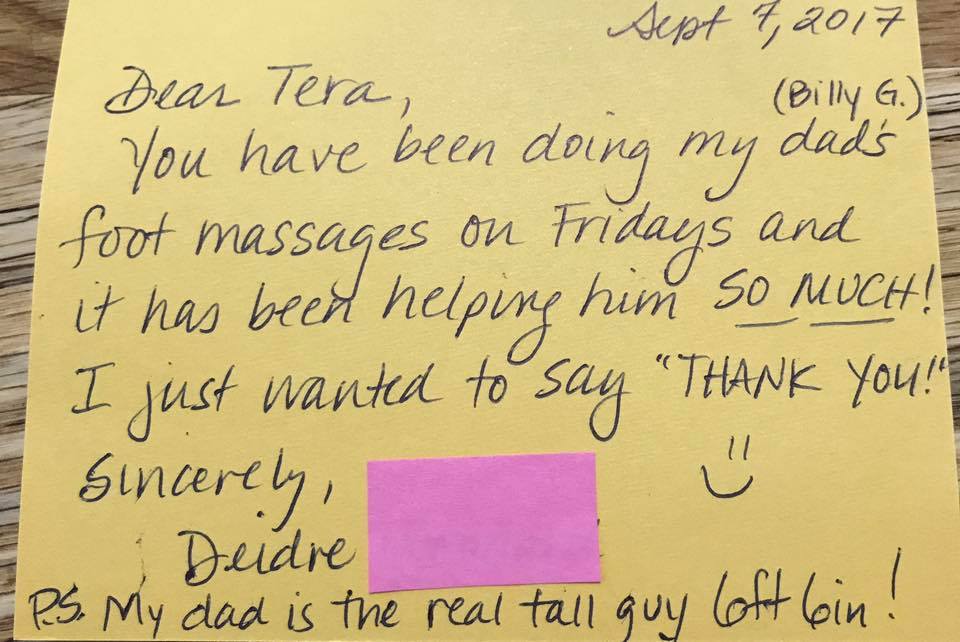 Sept 7, 2017
Dear Tera,
(Billy G.)
You have been doing my dad's
foot massages on Fridays and
it has been helping him SO MUCH!
I just wanted to say "THANK YOU!"
Sincerely,
Deidre
P.S. My dad is the real tall guy 6ft 6in!